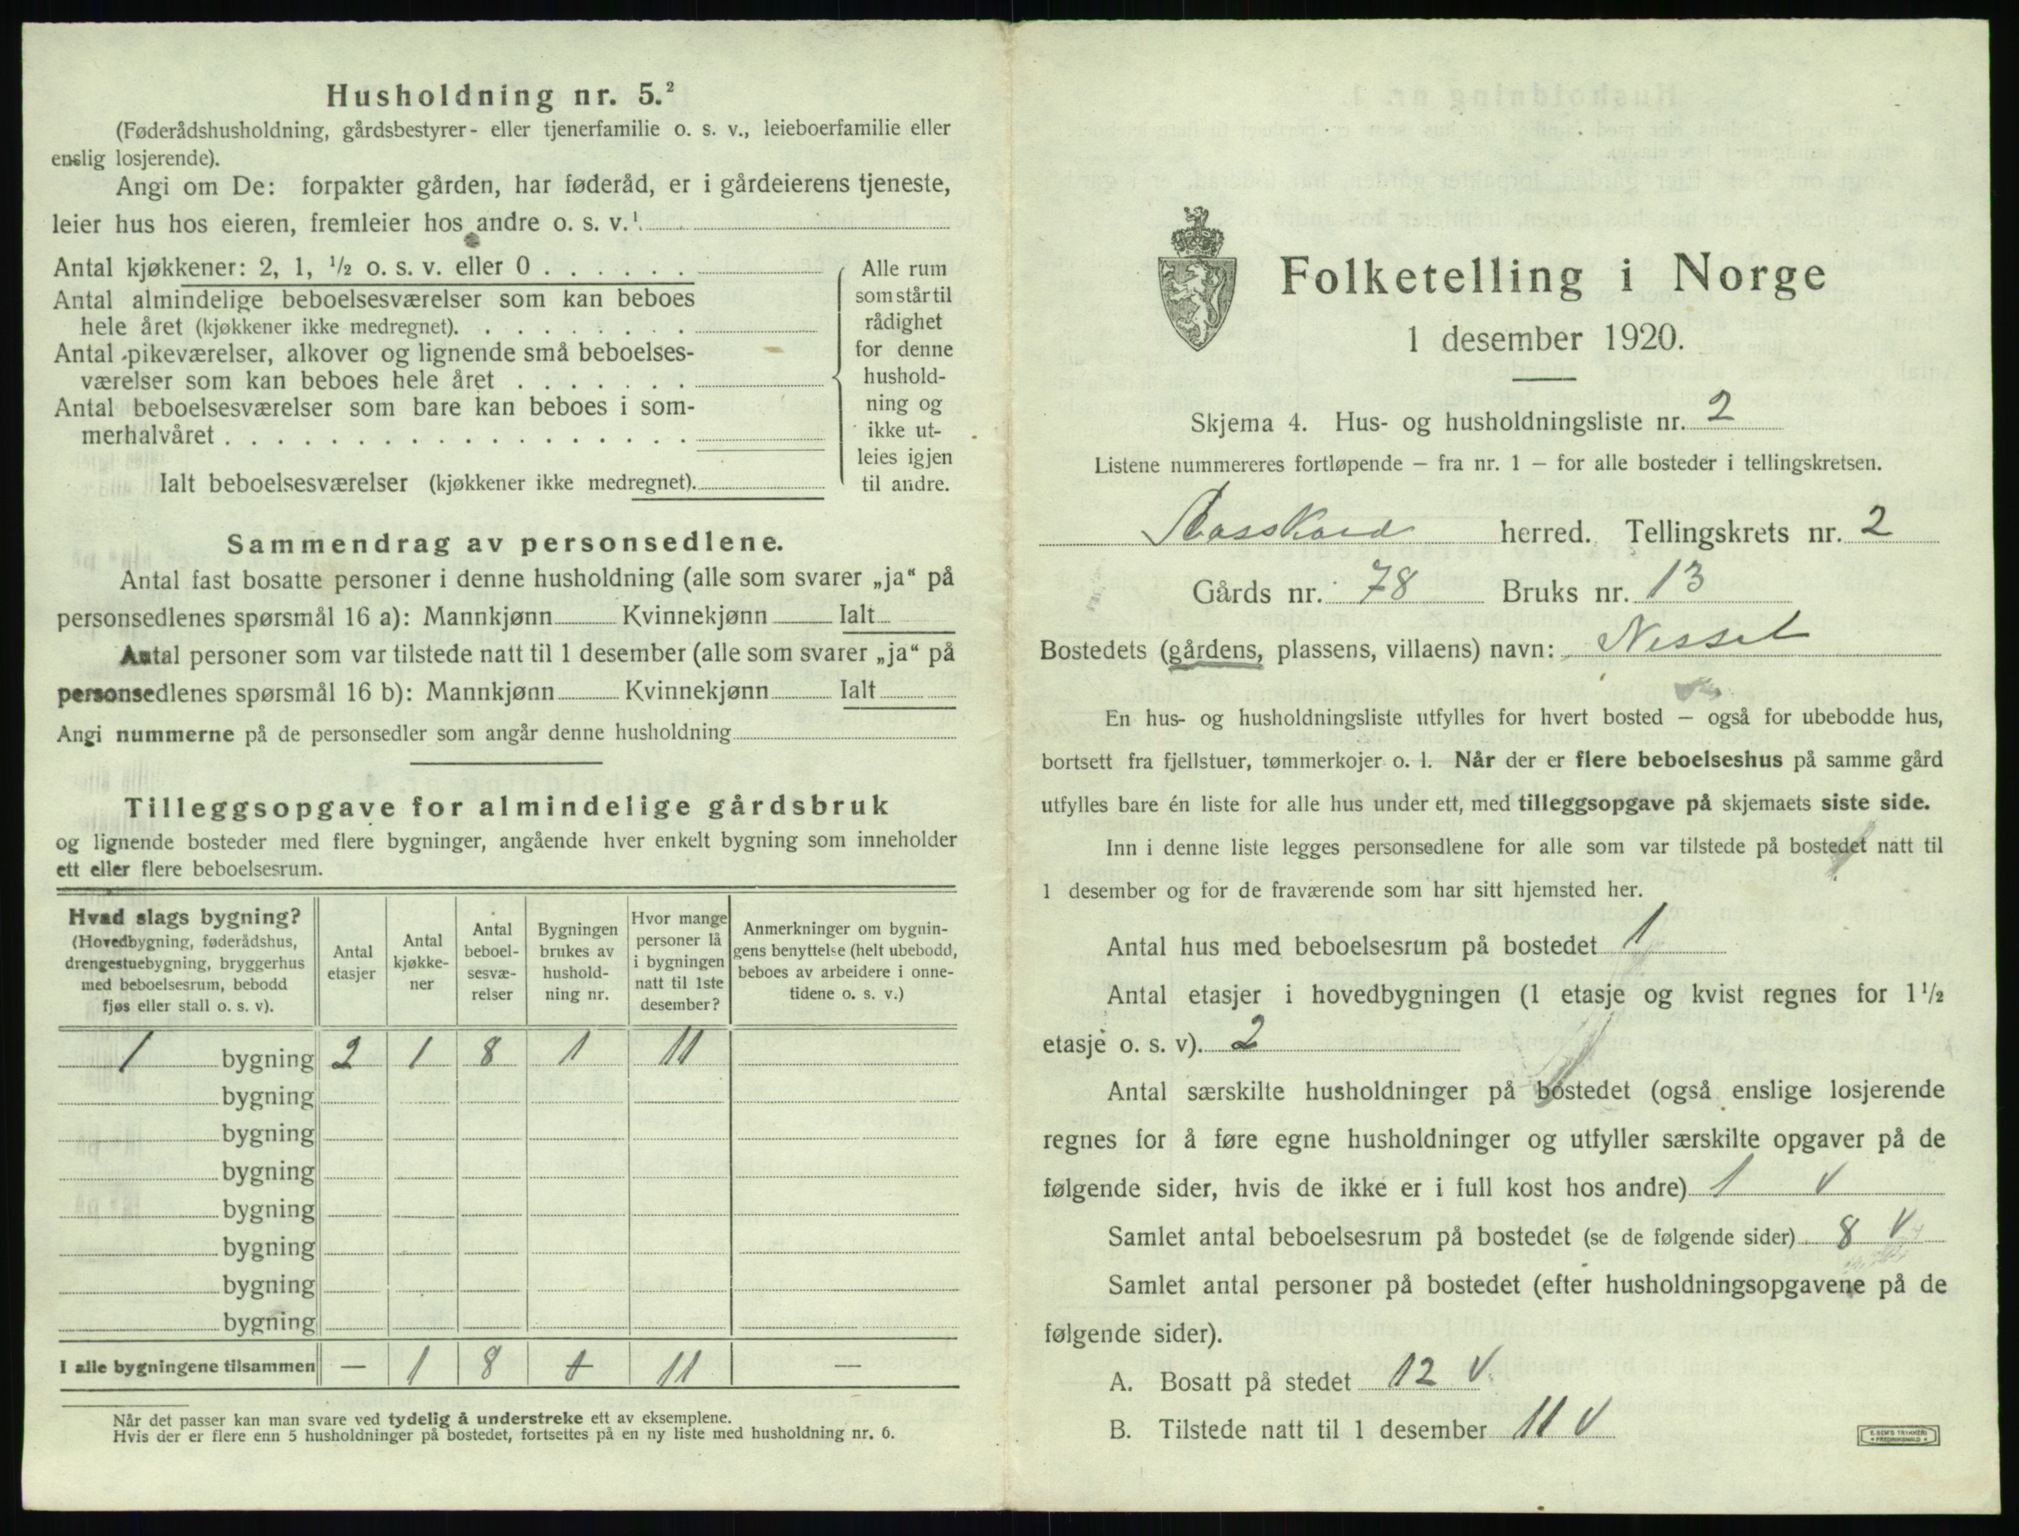 Husholdning nr. 5.²
(Føderådshusholdning, gårdsbestyrer- eller tjenerfamilie o. s. v., leieboerfamilie eller
enslig losjerende).
Angi om De: forpakter gården, har føderåd, er i gårdeierens tjeneste,
leier hus hos eieren, fremleier hos andre o. s. v.¹
Antal kjøkkener: 2, 1, ½ o. s. v. eller 0 . . . . . .
Antal almindelige beboelsesværelser som kan beboes
hele året (kjøkkener ikke medregnet). . . . . . . . .
Antal pikeværelser, alkover og lignende små beboelses-
værelser som kan beboes hele året . . . . . . .
Antal beboelsesværelser som bare kan beboes i som-
merhalvåret . . . . . . . . . . . . . . . . . .
Ialt beboelsesværelser (kjøkkener ikke medregnet).
Alle rum
som står til
rådighet
for denne
hushold-
ning og
ikke ut-
leies igjen
til andre.
Sammendrag av personsedlene.
Antal fast bosatte personer i denne husholdning (alle som svarer „ja“ på
personsedlenes spørsmål 16 a): Mannkjønn Kvinnekjønn Ialt
Antal personer som var tilstede natt til 1 desember (alle som svarer „ja“ på
personsedlenes spørsmål 16 b): Mannkjønn Kvinnekjønn Ialt
Angi nummerne på de personsedler som angår denne husholdning
Tilleggsopgave for almindelige gårdsbruk
og lignende bosteder med flere bygninger, angående hver enkelt bygning som inneholder
ett eller flere beboelsesrum.
Hvad slags bygning?
(Hovedbygning, føderådshus,
drengestuebygning, bryggerhus
med beboelsesrum, bebodd
fjøs eller stall o. s. v).
Antal
etasjer
Antal
kjøkke-
ner
Antal
beboel-
sesvæ-
relser
Bygningen
brukes av
hushold-
ning nr.
Hvor mange
personer lå
i bygningen
natt til 1ste
desember?
Anmerkninger om bygnin-
gens benyttelse (helt ubebodd,
beboes av arbeidere i onne-
tidene o. s. v.)
1 bygning 2 1 8 1 11
bygning
bygning
bygning
bygning
bygning
bygning
bygning
I alle bygningene tilsammen — 1 8 + 11 —
Når det passer kan man svare ved tydelig å understreke ett av eksemplene.
Hvis der er flere enn 5 husholdninger på bostedet, fortsettes på en ny liste med husholdning nr. 6.
Folketelling i Norge
1 desember 1920.
Skjema 4. Hus- og husholdningsliste nr. 2
Listene nummereres fortløpende – fra nr. 1 – for alle bosteder i tellingskretsen.
herred. Tellingskrets nr. 2
Gårds nr. 78 Bruks nr. 13
Bostedets (gårdens, plassens, villaens) navn: Nesset
En hus- og husholdningsliste utfylles for hvert bosted – også for ubebodde hus,
bortsett fra fjellstuer, tømmerkojer o. l. Når der er flere beboelseshus på samme gård
utfylles bare én liste for alle hus under ett, med tilleggsopgave på skjemaets siste side.
Inn i denne liste legges personsedlene for alle som var tilstede på bostedet natt til
1 desember og for de fraværende som har sitt hjemsted her.
Antal hus med beboelsesrum på bostedet 1
Antal etasjer i hovedbygningen (1 etasje og kvist regnes for 1½
etasje o. s. v). 2
Antal særskilte husholdninger på bostedet (også enslige losjerende
regnes for å føre egne husholdninger og utfyller særskilte opgaver på de
følgende sider, hvis de ikke er i full kost hos andre) 1 v
Samlet antal beboelsesrum på bostedet (se de følgende sider) 8 v
Samlet antal personer på bostedet (efter husholdningsopgavene på de
følgende sider).
A. Bosatt på stedet 12 v
B. Tilstede natt til 1 desember 11 v
E. SEM'S TRYKKERI
FREDRIKSHALD